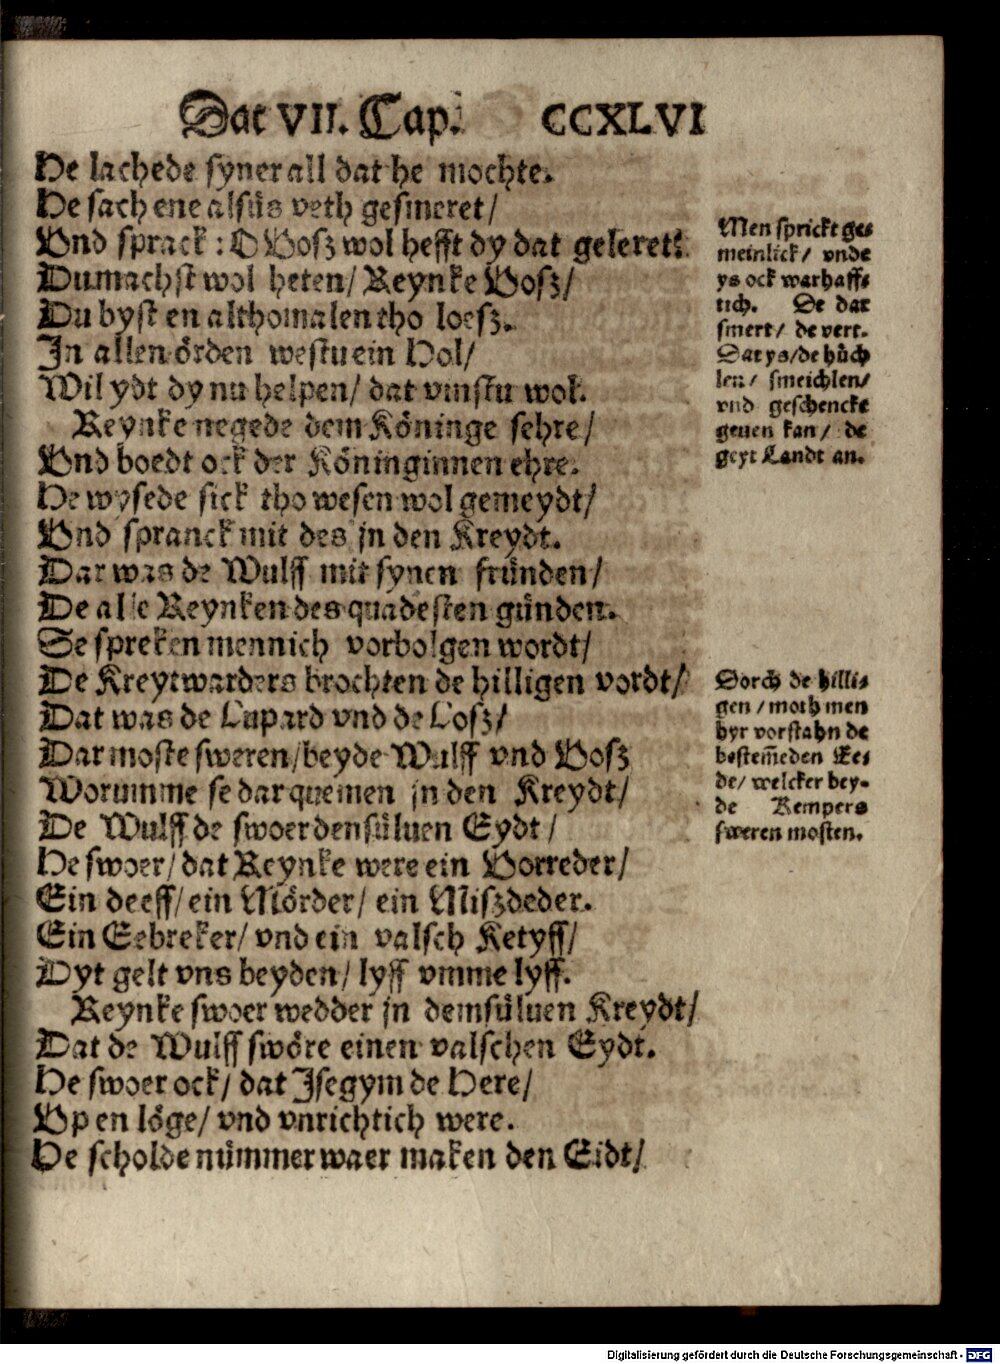 Dat VII. Cap. CCXLVI
He lachede syner all dat he mochte.
He sach ene alsüs veth gesmeret/
Vnd sprack : O Vosz wol hefft dy dat geleret?
Du machst wol heten/ Reynke Vosz/
Du byst en althomalen tho loesz.
In allen örden westu ein Hol/
Wil ydt dy nu helpen/ dat vinstu wol.
Reynke negede dem Köninge sehre/
Vnd boedt ock der Köninginnen ehre.
He wysede sick tho wesen wol gemeydt/
Vnd spranck mit des jn den Kreydt.
Dar was de Wulff mit synen fründen/
De alle Reynken des quadesten günden.
Se spreken mennich vorbolgen wordt/
De Kreytwarders brochten de hilligen vordt/
Dat was de Lupard vnd de Losz/
Dar moste sweren/beyde Wulff vnd Vosz
Worumme se dar quemen jn den Kreydt/
De Wulff de swoer densüluen Eydt /
He swoer/ dat Reynke were ein Vorreder/
Ein deeff/ ein Mörder/ ein Miszdeder.
Ein Eebreker/ vnd ein valsch Ketyff/
Dyt gelt vns beyden/ lyff vmme lyff.
Reynke swoer wedder jn demsüluen Kreydt/
Dat de Wulff swöre einen valschen Eydt.
He swoer ock/ dat Isegym de Here/
Vp en löge/ vnd vnrichtich were.
He scholde nümmer waer maken den Eidt/
Men sprickt ge-
meinlick/ vnde
ys ock warhaff-
tich. De dar
smert/ de vert.
Dat ys/ de hüch
len/ smeichlen/
vnd geschencke
geuen kan/ de
geyt Landt an.
Dorch de hilli-
gen / moth men
hyr vorstahn de
bestem̄eden Ee-
de/ welcker bey-
de Kempers
sweren mosten.
Digitalisierung gefördert durch die Deutsche Forschungsgemeinschaft - DFG